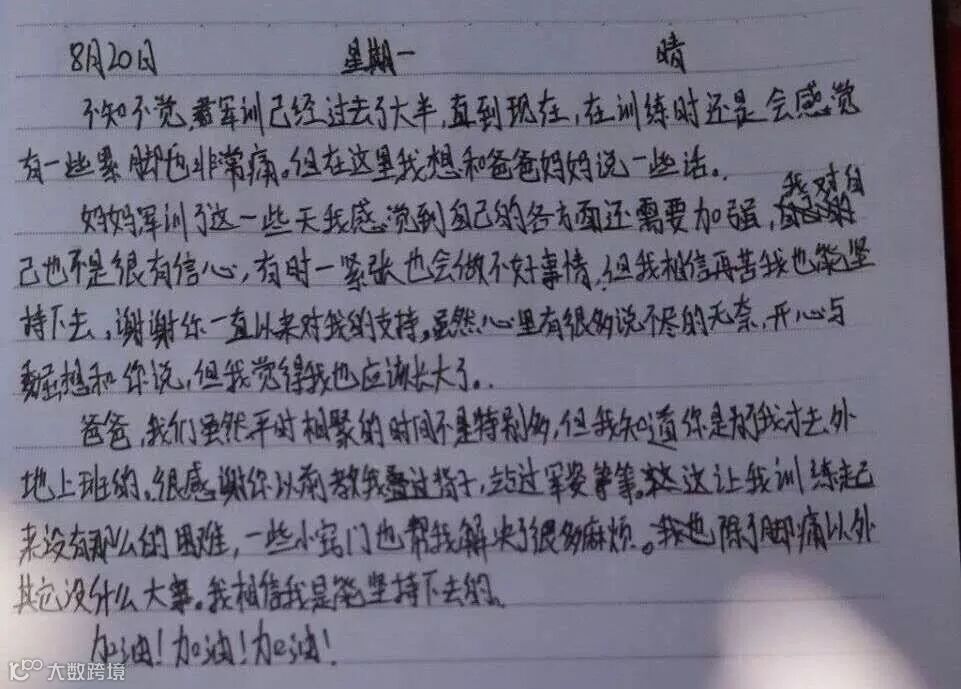 8月20日 星期一 晴
不知不觉,军训已经过去了大半,直到现在,在训练时还是会感觉
有一些累脚也非常痛。但在这里我想和爸爸妈妈说一些话。
妈妈军训了这一些天我感觉到自己的各方面还需要加强,我对自
己也不是很有信心,有时一紧张也会做不好事情,但我相信再苦我也能坚
持下去,谢谢你一直以来对我的支持。虽然心里有很多说不尽的无奈,开心与
委屈想和你说,但我觉得我也应该长大了。
爸爸,我们虽然平时相聚的时间不是特别多,但我知道你是为我才去外
地上班的。很感谢你以前教我叠过被子,站过军姿等等。这让我训练起
来没有那么的困难,一些小窍门也帮我解决了很多麻烦。我也除了脚痛以外
其它没什么大事。我相信我是能坚持下去的。
加油!加油!加油!
大数跨境